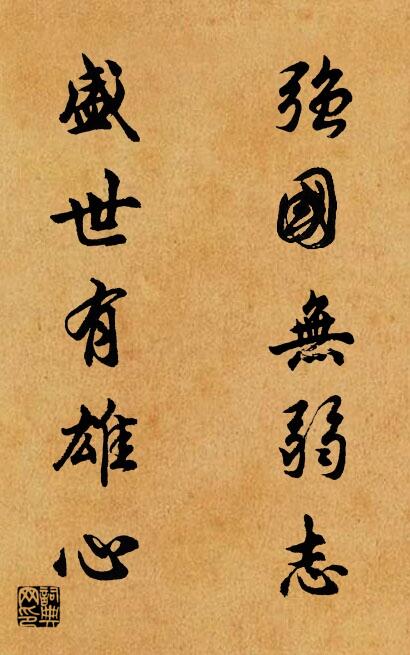 強國無弱志
盛世有雄心
詞典
网印